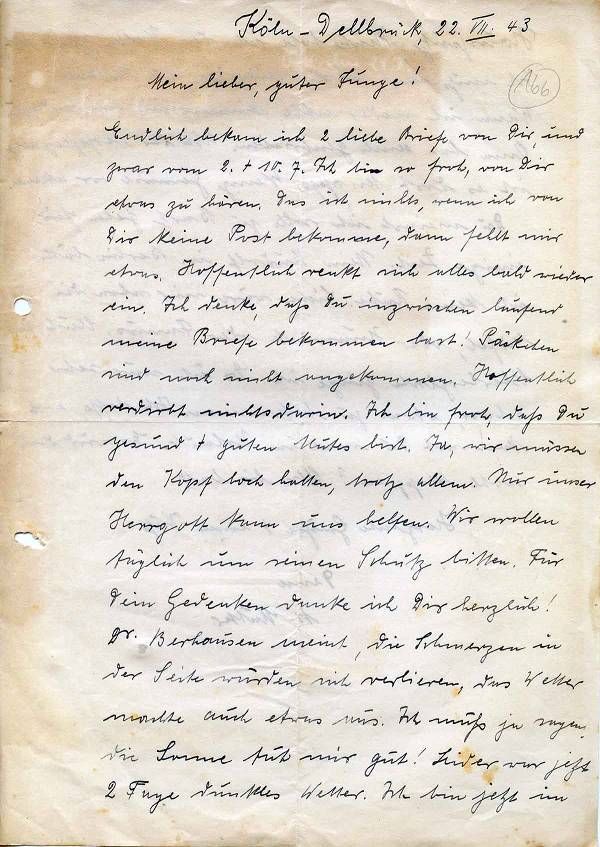 Köln-Dellbrück, 22. VII. 43
A66
Mein lieber, guter Junge!
Endlich bekam ich 2 liebe Briefe von Dir, und
zwar vom 2. + 10. 7. Ich bin so froh, von Dir
etwas zu hören. Das ist nichts, wenn ich von
Dir keine Post bekomme, dann fehlt mir
etwas. Hoffentlich renkt sich alles bald wieder
ein. Ich denke, daß Du inzwischen laufend
meine Briefe bekommen hast! Päckchen
sind noch nicht angekommen. Hoffentlich
verdirbt nichts darin. Ich bin froh, daß Du
gesund + guten Mutes bist. Ja, wir müssen
den Kopf hoch halten, trotz allem. Nur unser
Herrgott kann uns helfen. Wir wollen
täglich um seinen Schutz bitten. Für
Dein Gedenken danke ich Dir herzlich!
Dr. Berhausen meint, die Schmerzen in
der Seite würden sich verlieren, das Wetter
machte auch etwas aus. Ich muß ja sagen,
die Sonne tut mir gut! Leider war jetzt
2 Tage dunkles Wetter. Ich bin jetzt im